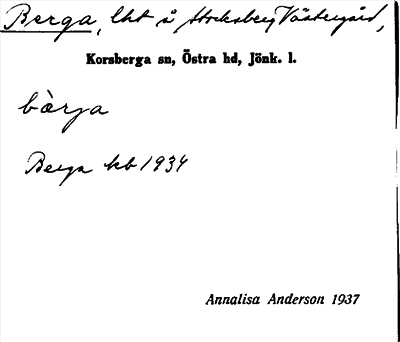 Berga, lht å Stocksberg Västergård,
Korsberga sn, Östra hd, Jönk. l.
bàrja
Berga kb 1934
Annalisa Anderson 1937